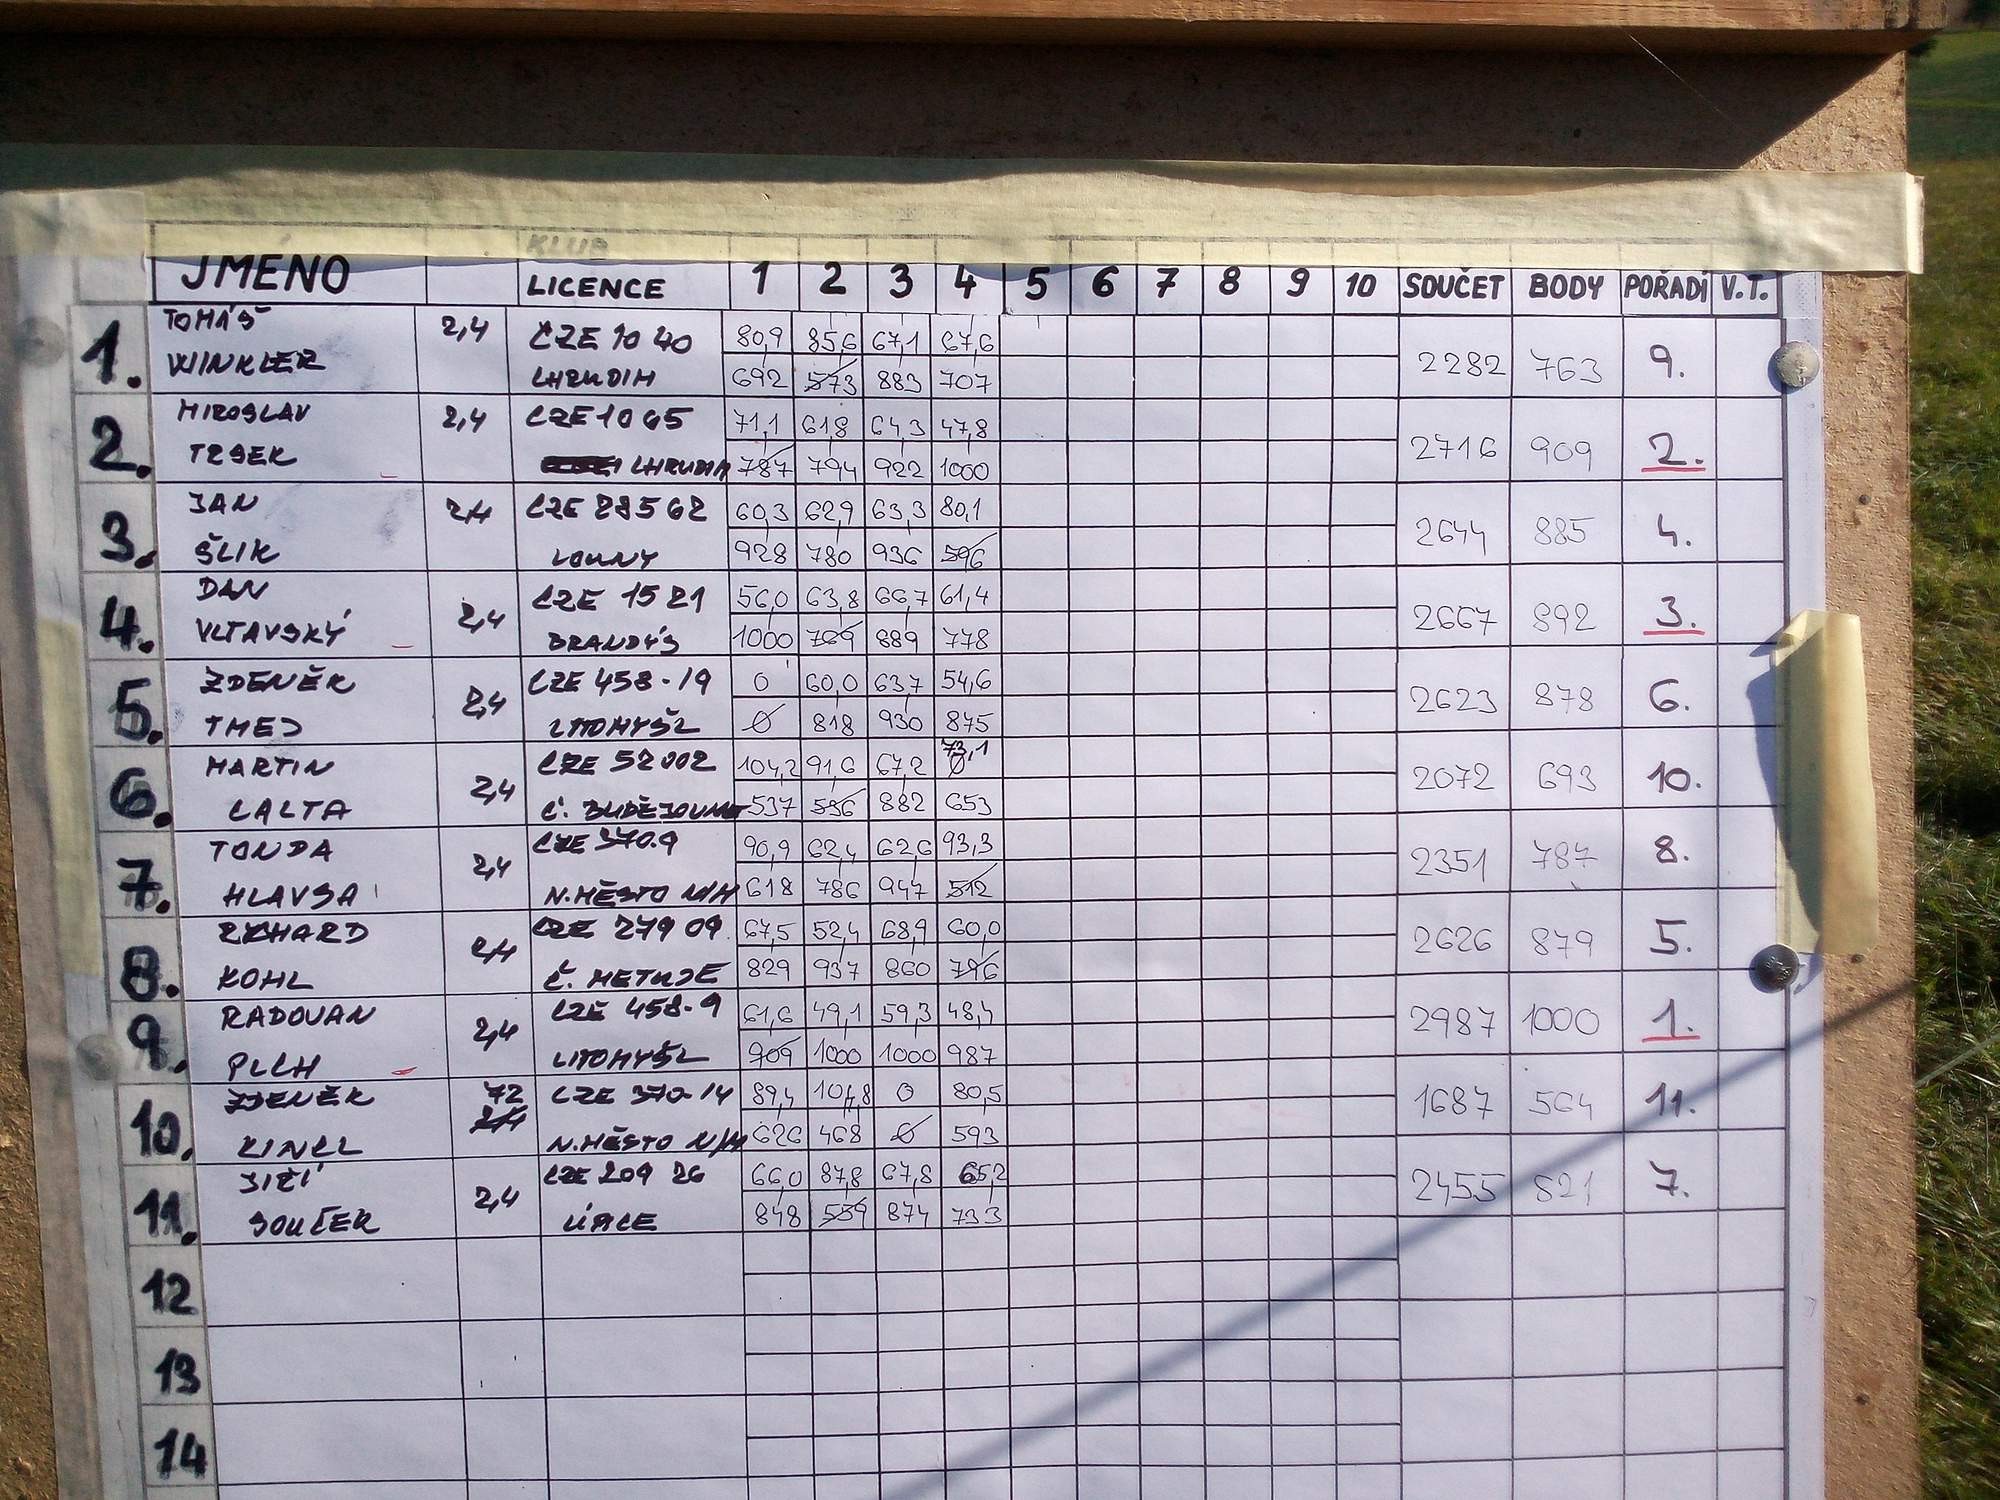 KLUB
JMÉNO LICENCE 1 2 3 4 5 6 7 8 9 10 SOUČET BODY POŘADÍ V.T.
1. TOMÁŠ 2,4 CZE 10 40 80,9 85,6 67,1 67,6 2282 763 9.
WINKLER CHRUDIM 692 573 883 707
2. MIROSLAV 2,4 CZE 10 65 71,1 61,8 64,3 47,8 2716 909 2.
TRSEK CHRUDIM 787 794 922 1000
3. JAN 2,4 CZE 28562 60,3 62,9 63,3 80,1 2644 885 4.
ŠLIK LOUNY 928 780 936 596
4. DAN 2,4 CZE 15 21 56,0 63,8 66,7 61,4 2667 892 3.
VLTAVSKÝ BRANDÝS 1000 769 889 778
5. ZDENĚK 2,4 CZE 458-19 0 60,0 63,7 54,6 2623 878 6.
TMEJ LITOMYŠL 0 818 930 875
6. MARTIN 2,4 CZE 52002 104,2 91,6 67,2 73,1 2072 693 10.
LALTA Č. 537 536 882 653
7. TONDA 2,4 CZE 370.9 90,9 62,4 62,6 93,3 2351 787 8.
HLAVSA N. MĚSTO N/M 618 786 947 512
8. RICHARD 2,4 CZE 279 09 67,5 52,4 68,9 60,0 2626 879 5.
KOHL Č. METUJE 829 937 860 796
9. RADOVAN 2,4 CZE 458-9 61,6 49,1 59,3 48,4 2987 1000 1.
PLCH LITOMYŠL 909 1000 1000 987
10. ZDENĚK 72 CZE 370-14 89,4 104,8 0 80,5 1687 564 11.
KINCL 2,4 N. MĚSTO N/M 626 468 0 593
11. JIŘÍ 2,4 CZE 209 26 66,0 87,8 67,8 65,2 2455 821 7.
SOUČEK 848 559 874 733
12
13
14